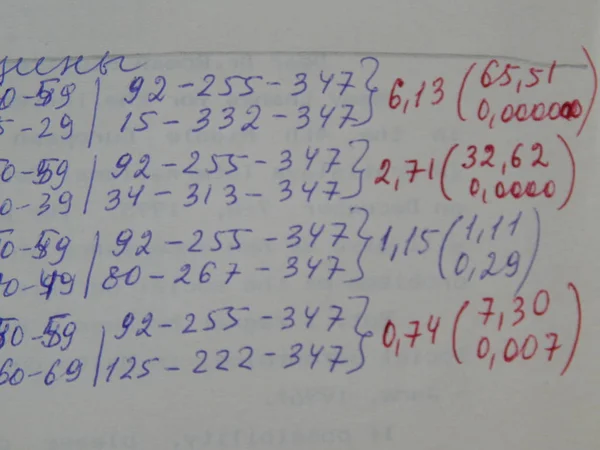 92-255-347 } 6,13 ( 65,51
5-29 | 15-332-347 } 0,000000 )
92-255-347 } 2,71 ( 32,62
0-39 | 34-313-347 } 0,0000 )
92-255-347 } 1,15 ( 1,11
80-267-347 } 0,29 )
92-255-347 } 0,74 ( 7,30
60-69 | 125-222-347 } 0,007 )